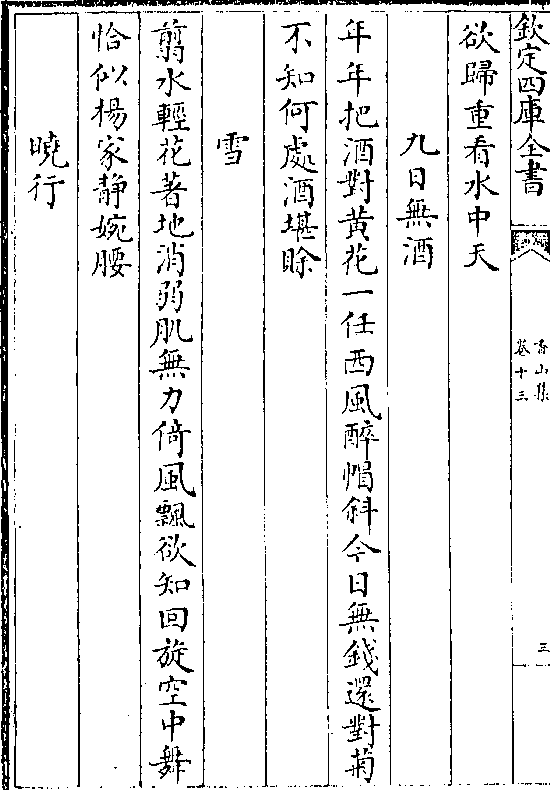 欽定四庫全書
香山集
卷十三
三
欲歸重看水中天
九日無酒
年年把酒對黃花一任西風醉帽斜今日無錢還對菊
不知何處酒堪賒
雪
翦水輕花著地消弱肌無力倚風飄欲知回旋空中舞
恰似楊家静婉腰
曉行